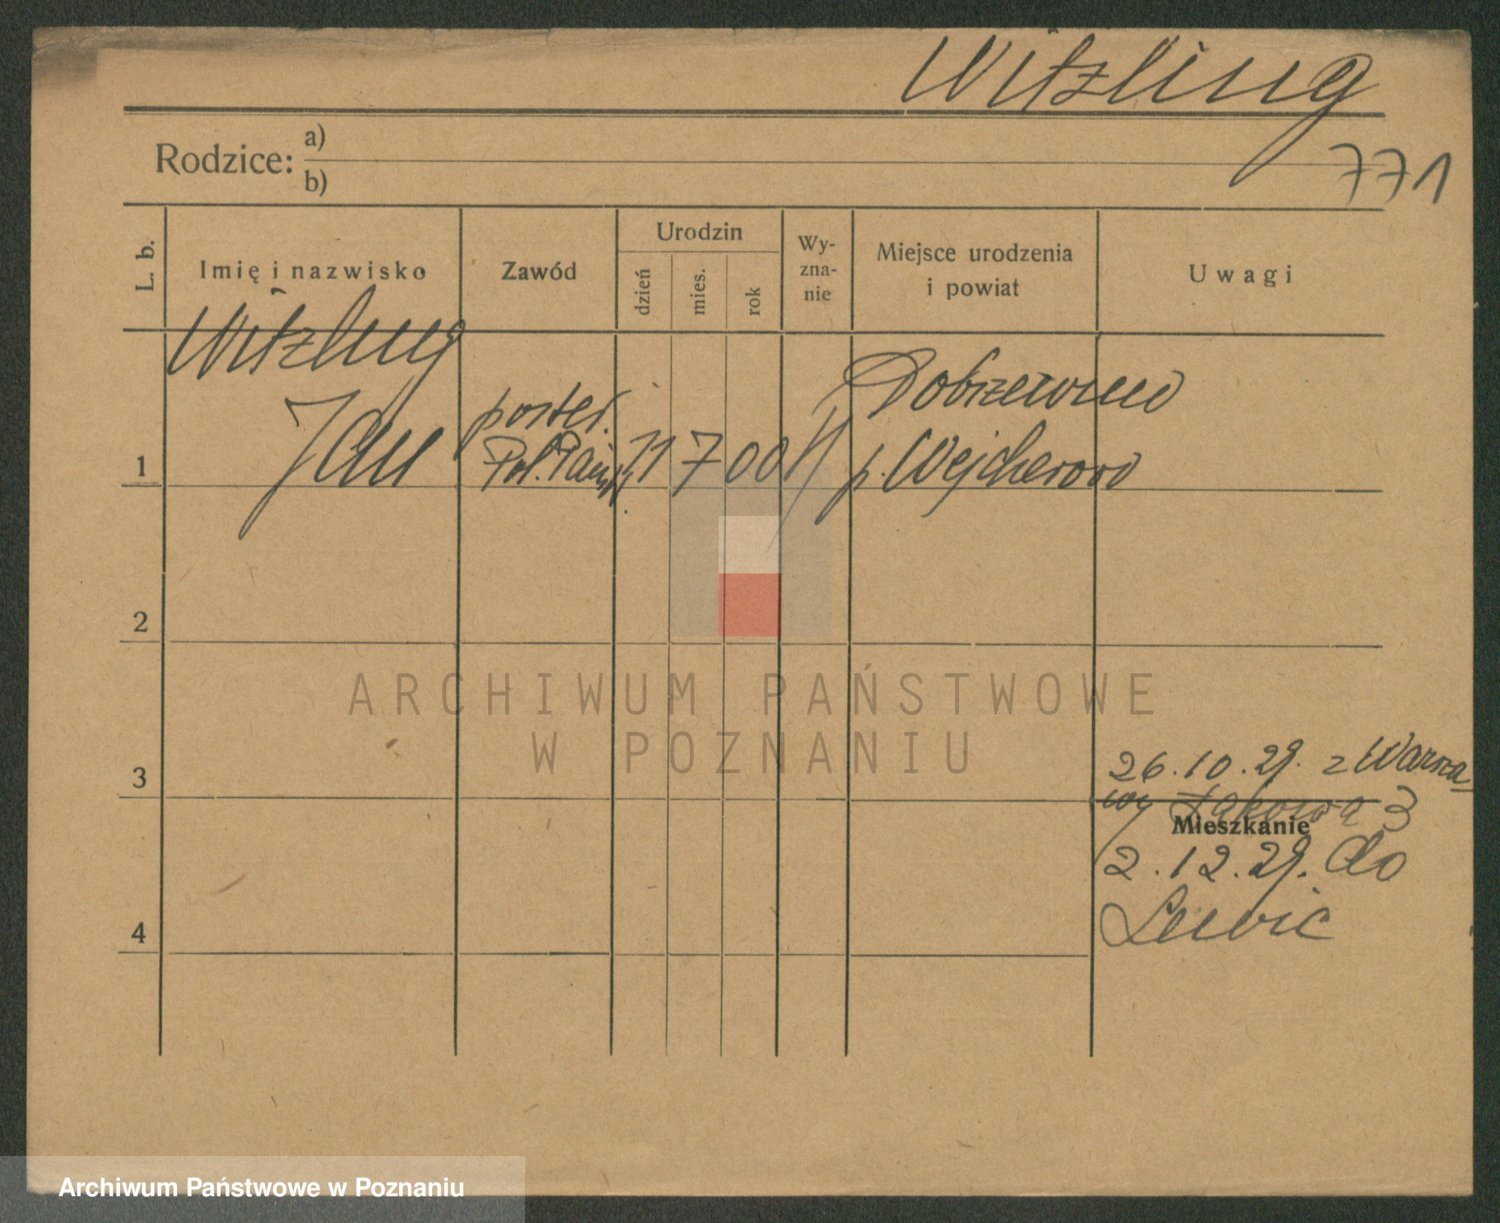 Witzling
771
Rodzice: a)
b)
L. b.
Imię i nazwisko
Zawód
Urodzin
dzień
mies.
rok
Wy-
zna-
nie
Miejsce urodzenia
i powiat
Uwagi
Witzling
Jan
poster.
Pol. Państ.
11 7 00
Dobrzewino
p. Wejherowo
1
2
3
4
26.10.29. z Warsza
wy Łąkowa 3
Mieszkanie
2.12.29. do
ARCHIWUM PAŃSTWOWE
W POZNANIU
Archiwum Państwowe w Poznaniu